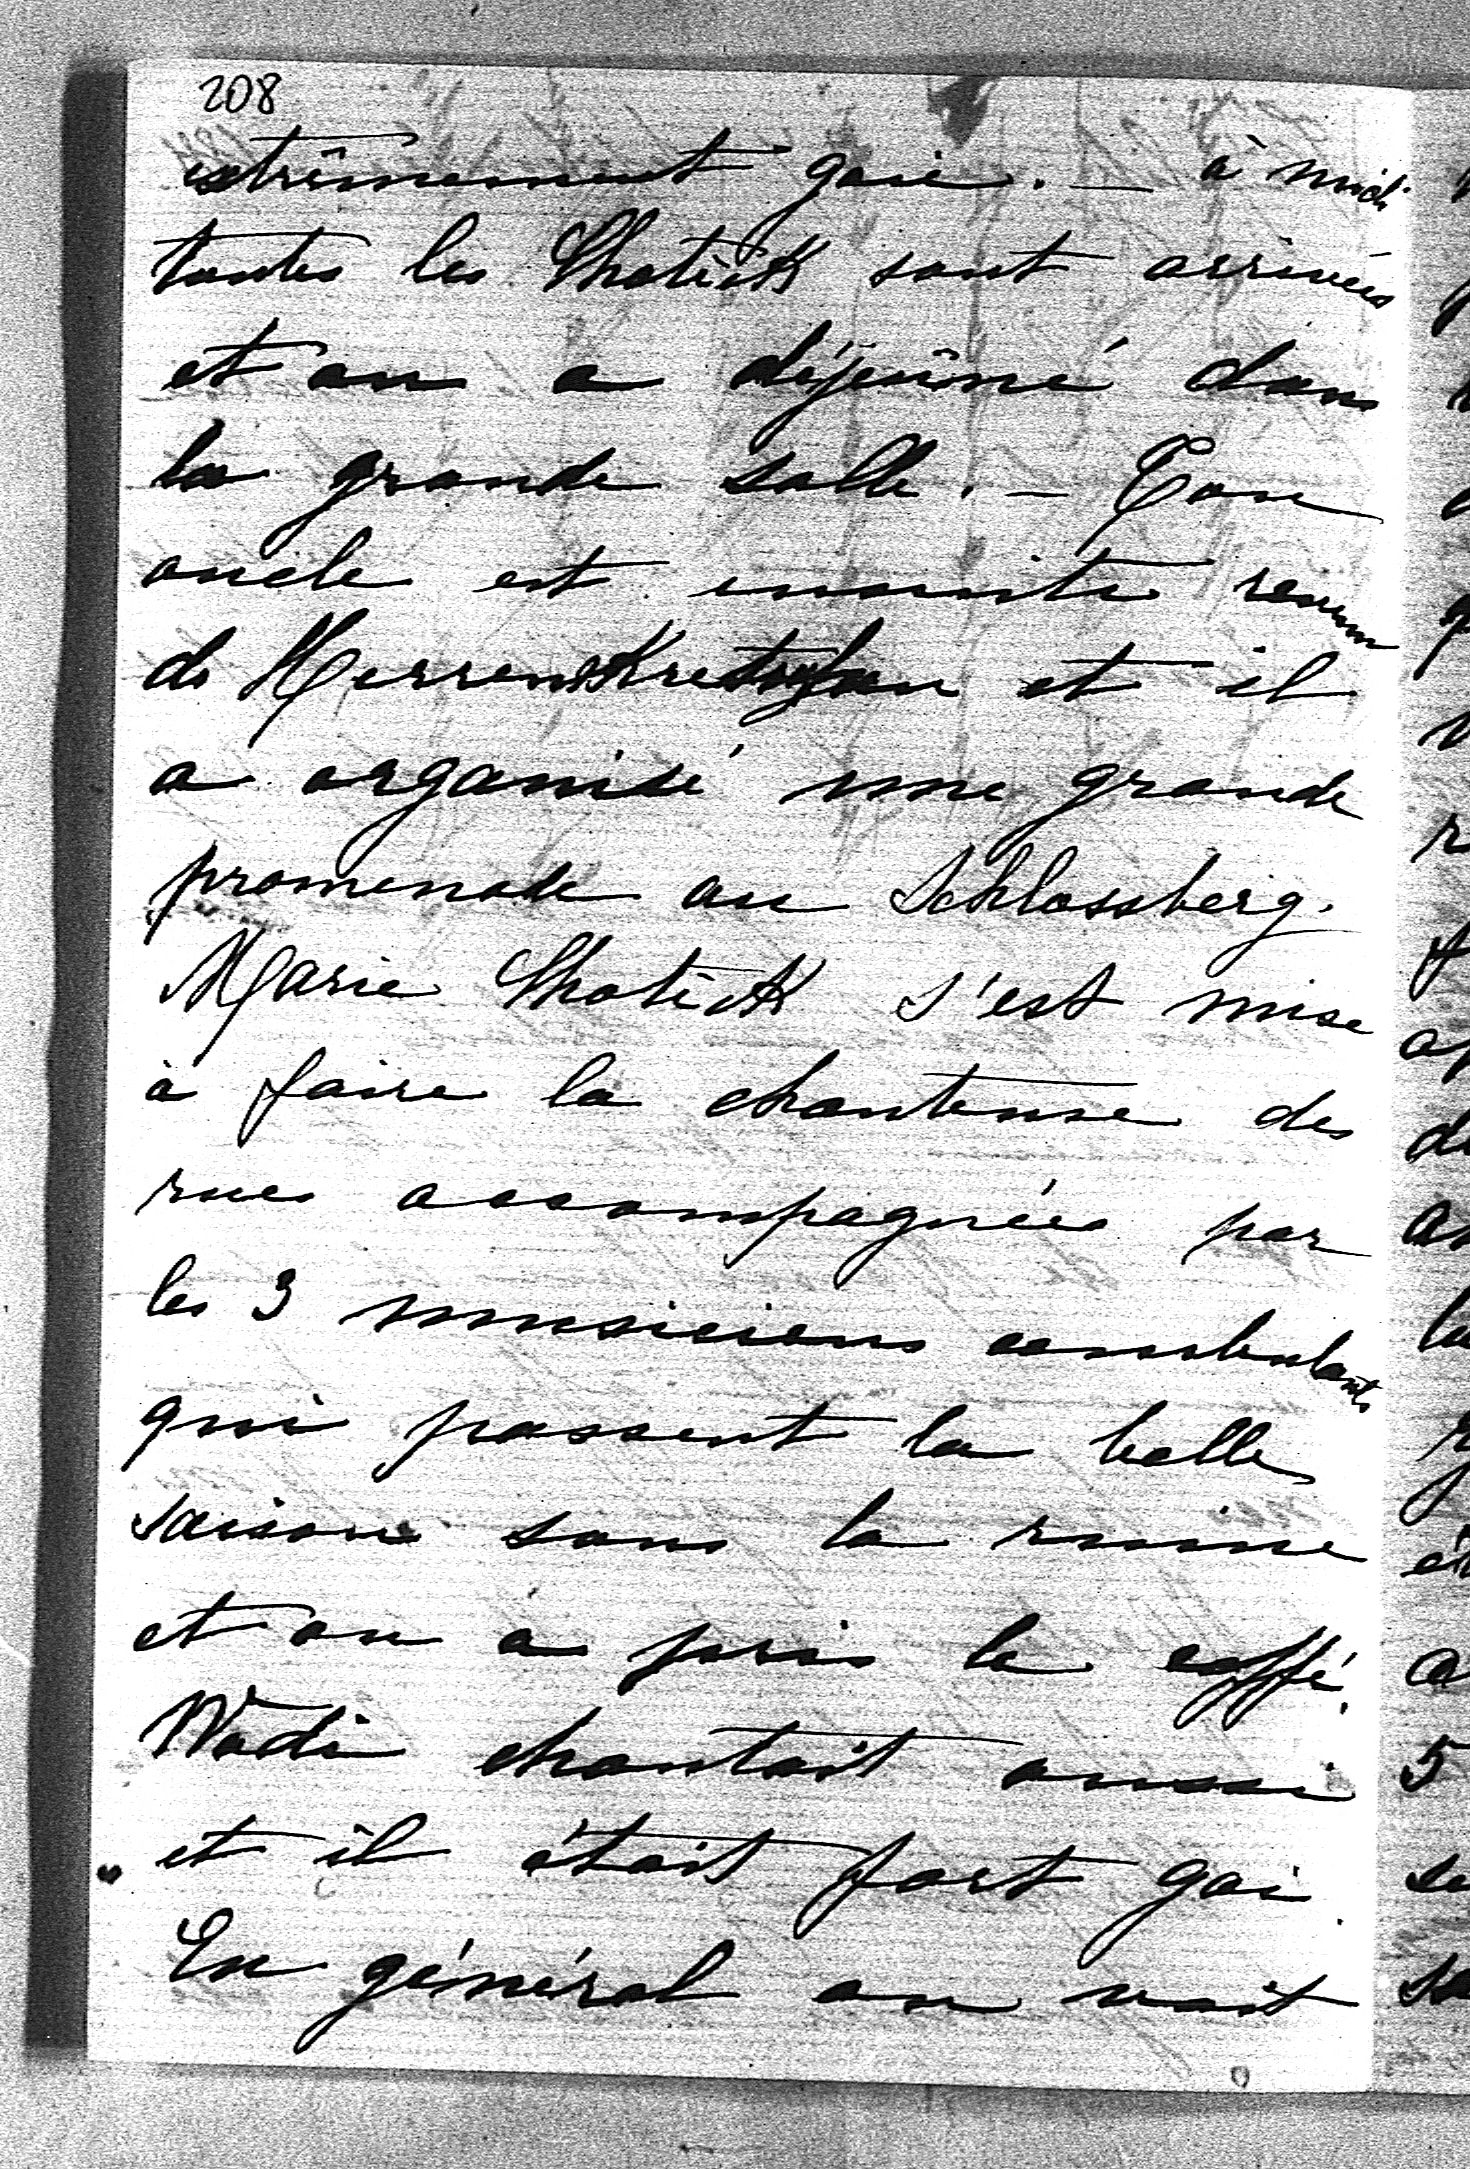 208
extrêmement gaie. — à midi
toutes les Chotek sont arrivées
et on a déjeûné dans
la grande salle. — Ton
oncle est ensuite revenu
de Herrnskretschen et il
a organisé une grande
promenade au Schlossberg.
Marie Chotek s'est mise
à faire la chanteuse des
rues accompagnée par
les 3 musiciens ambulants
qui passent la belle
saison sous la ruine
et on a pris le caffé.
Wadi chantait aussi
et il était fort gai.
En général on voit